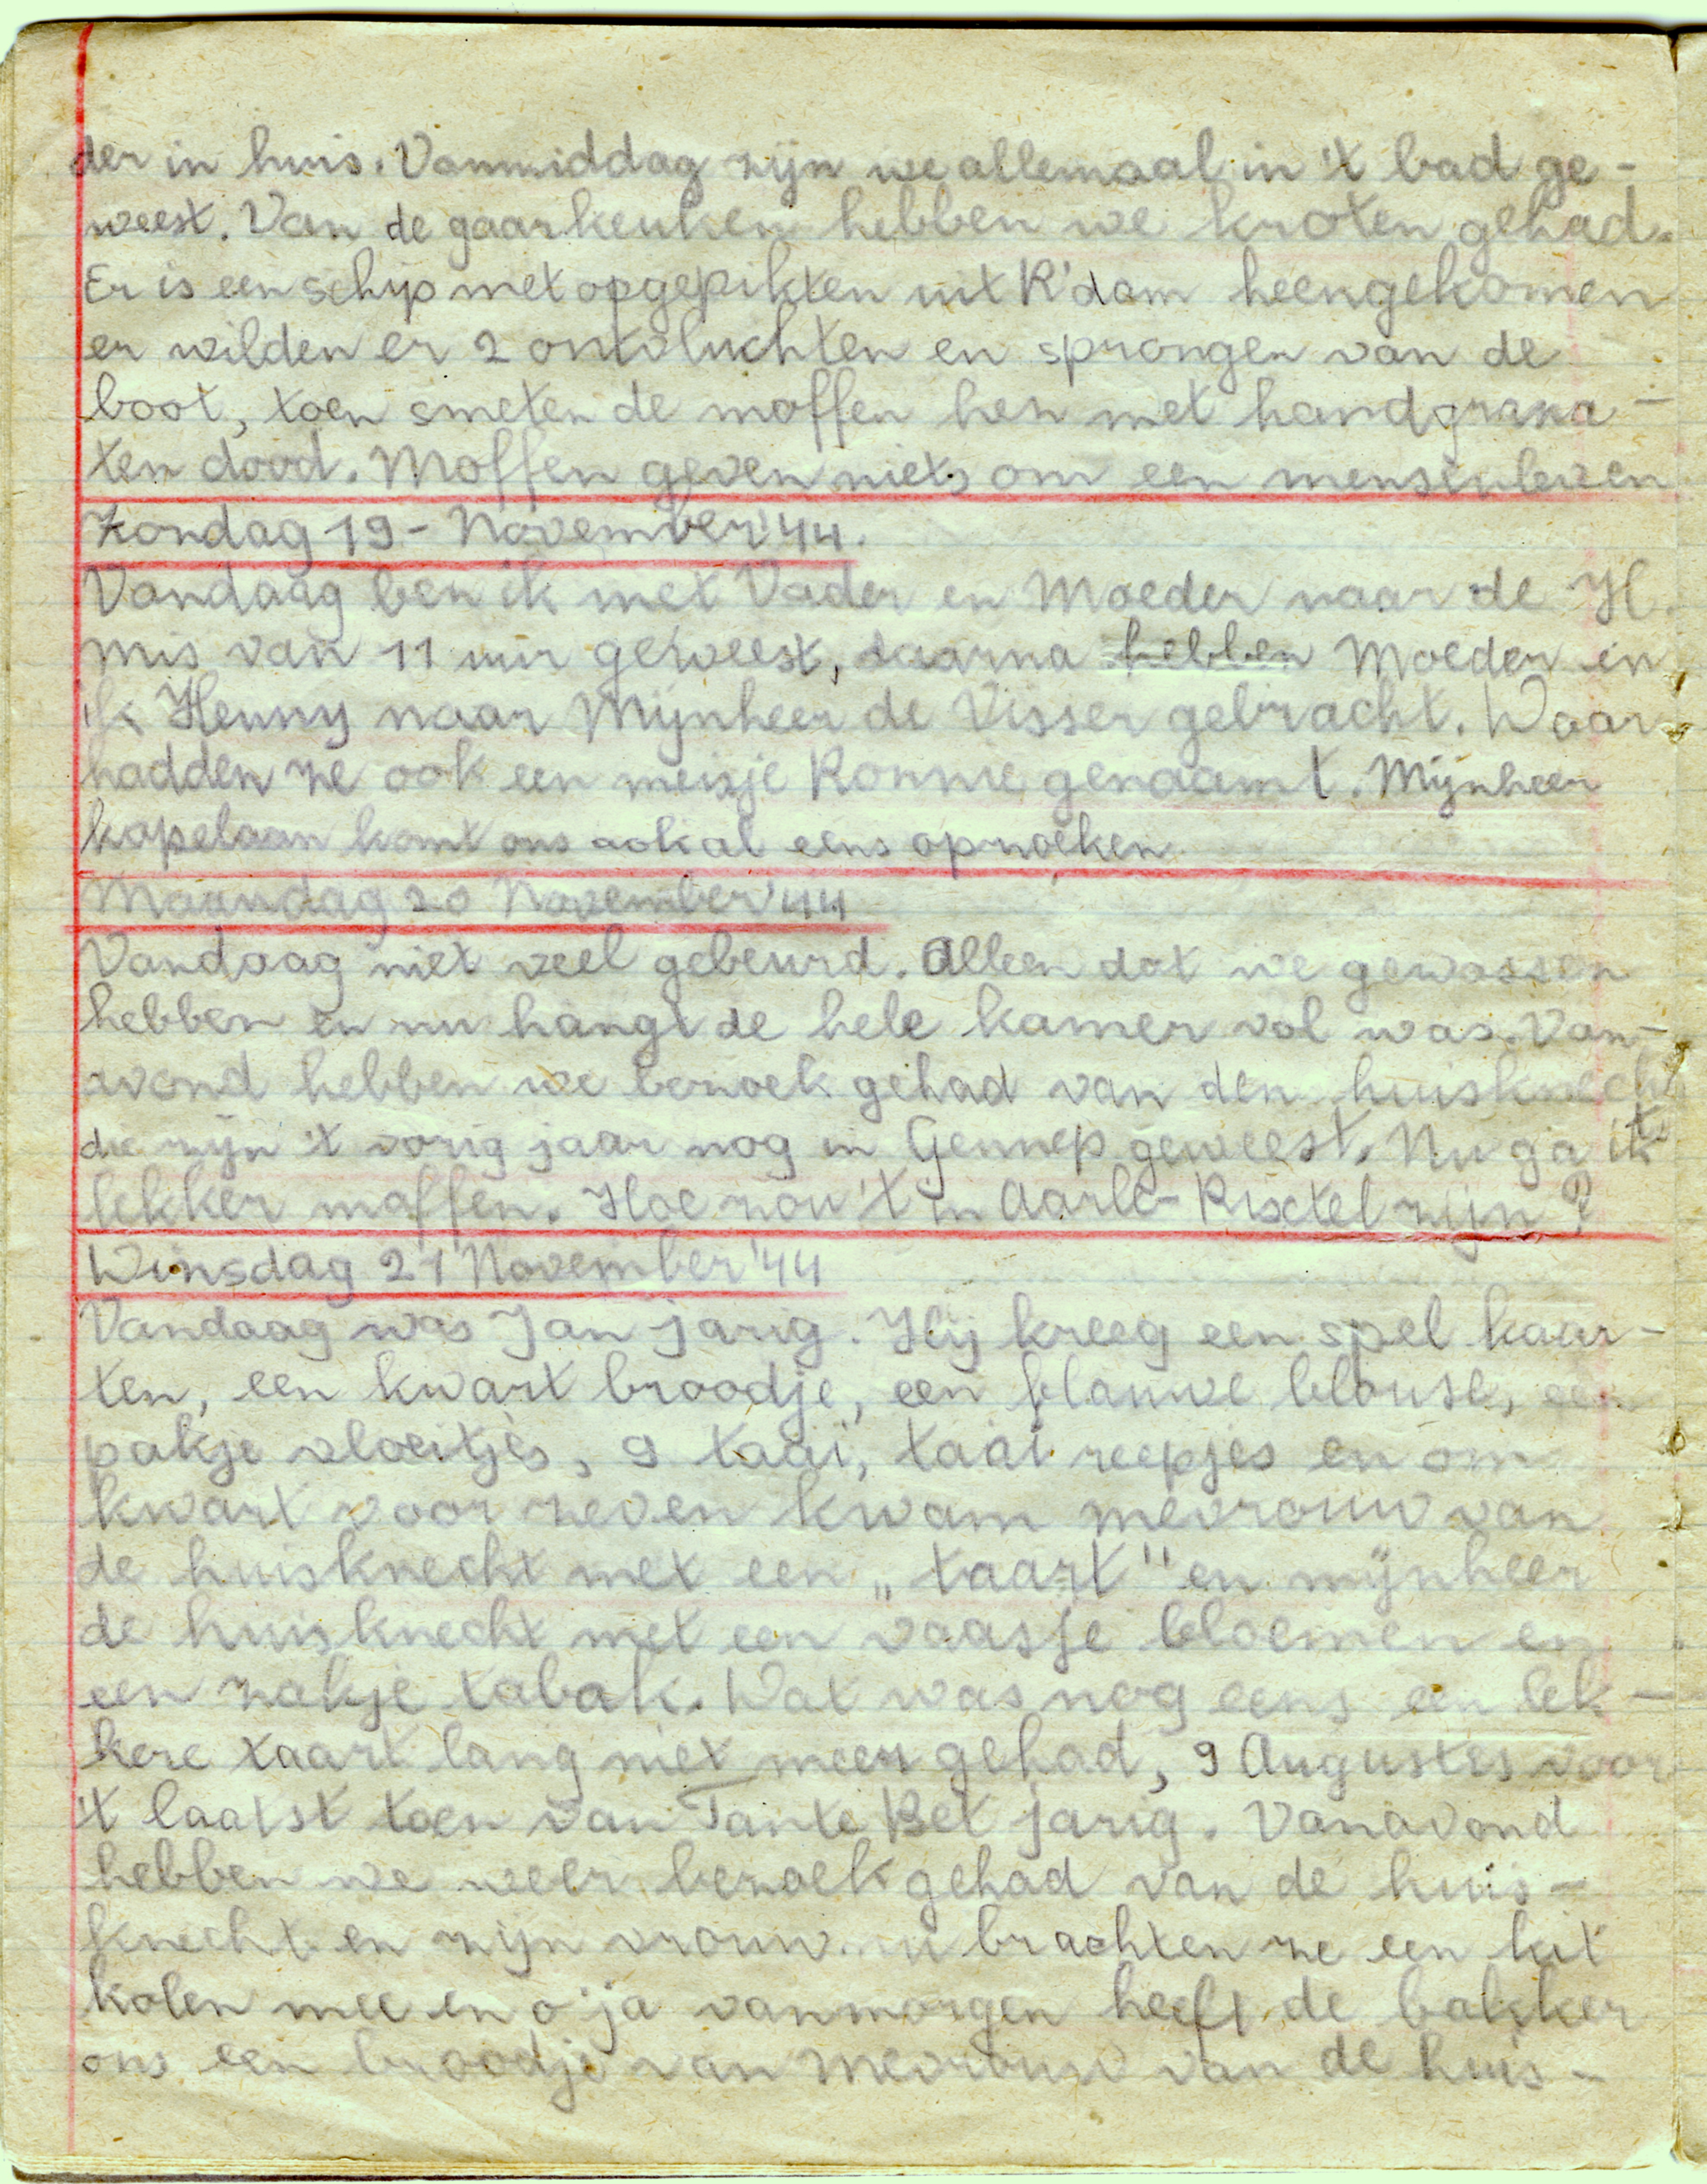 der in huis. Vanmiddag zijn we allemaal in 't bad ge-
weest. Van de gaarkeuken hebben we kroten gehad.
Er is een schip met opgepikten uit R'dam heengekomen
er wilden er 2 ontvluchten en sprongen van de
boot, toen smeten de moffen hen met handgrana-
ten dood. Moffen geven niets om een mensenleven
Zondag 19 - November '44.
Vandaag ben ik met Vader en Moeder naar de H.
mis van 11 uur geweest, daarna hebben Moeder en
ik Henny naar Mijnheer de Visser gebracht. Daar
hadden ze ook een meisje Ronnie genaamt. Mijnheer
kapelaan komt ons ook al eens opzoeken
Maandag 20 November '44
Vandaag niet veel gebeurd. Alleen dat we gewassen
hebben en nu hangt de hele kamer vol was. Van-
avond hebben we bezoek gehad van den huisknecht
die zijn 't vorig jaar nog in Gennep geweest. Nu ga ik
lekker maffen. Hoe zou 't in Aarle-Rixtel zijn?
Dinsdag 21 November '44
Vandaag was Jan jarig. Hij kreeg een spel kaar-
ten, een kwart broodje, een blauwe blouse, een
pakje vloeitjes, 9 taai, taai reepjes en om
kwart voor zeven kwam mevrouw van
de huisknecht met een „taart" en mijnheer
de huisknecht met een vaasje bloemen en
een zakje tabak. Dat was nog eens een lek-
kere taart lang niet meer gehad, 9 Augustus voor
't laatst toen van Tante Bet jarig. Vanavond
hebben we weer bezoek gehad van de huis-
knecht en zijn vrouw. nu brachten ze een kit
kolen mee en o ja vanmorgen heeft de bakker
ons een broodje van mevrouw van de huis-